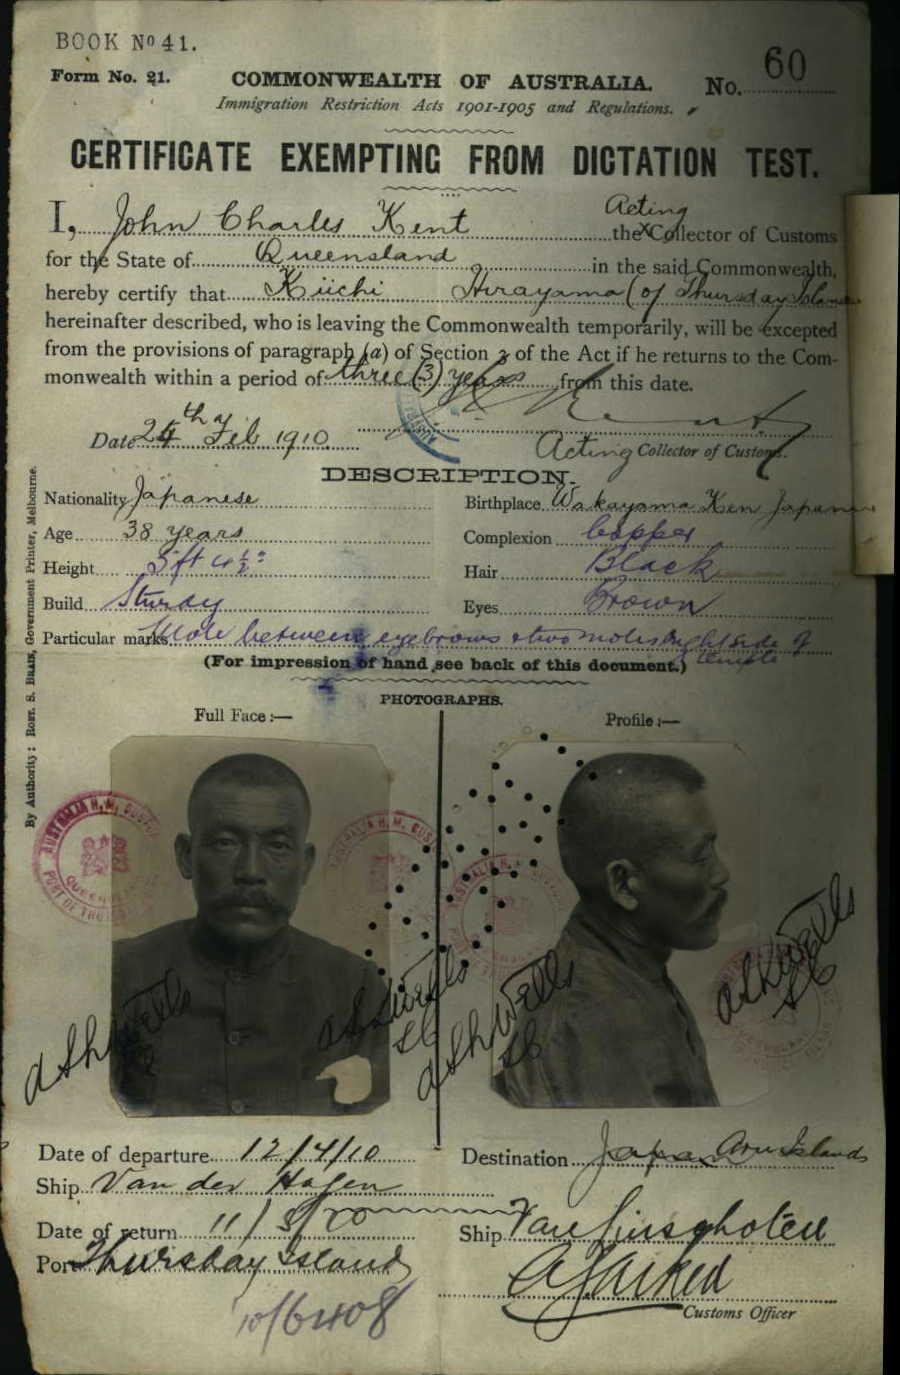 BOOK No 41.
Form No. 21.
COMMONWEALTH OF AUSTRALIA.
No. 60
Immigration Restriction Acts 1901-1905 and Regulations.
CERTIFICATE EXEMPTING FROM DICTATION TEST.
Acting
I, John Charles Kent the Collector of Customs
for the State of Queensland in the said Commonwealth,
hereby certify that Kiichi Hirayama (of Thursday Island
hereinafter described, who is leaving the Commonwealth temporarily, will be excepted
from the provisions of paragraph (a) of Section 3 of the Act if he returns to the Com-
monwealth within a period of three (3) years from this date.
Date 24th Feb 1910.
Acting Collector of Customs.
DESCRIPTION.
Nationality Japanese
Birthplace Wakayama Ken Japan
Age 38 years
Complexion Copper
Height 5ft 4½"
Hair Black
Build Sturdy
Eyes Brown
Particular marks Mole between eyebrows & two moles right side of
temple
(For impression of hand see back of this document.)
PHOTOGRAPHS.
Full Face:—
Profile:—
By Authority: ROBT. S. BRAIN, Government Printer, Melbourne.
AUSTRALIA H.M. CUSTOMS
Date of departure 12/4/10
Destination Japan Islands
Ship Van der Hagen
Date of return 11/5/20
Ship Van Linschoten
Port Thursday Island
Customs Officer
10/6408